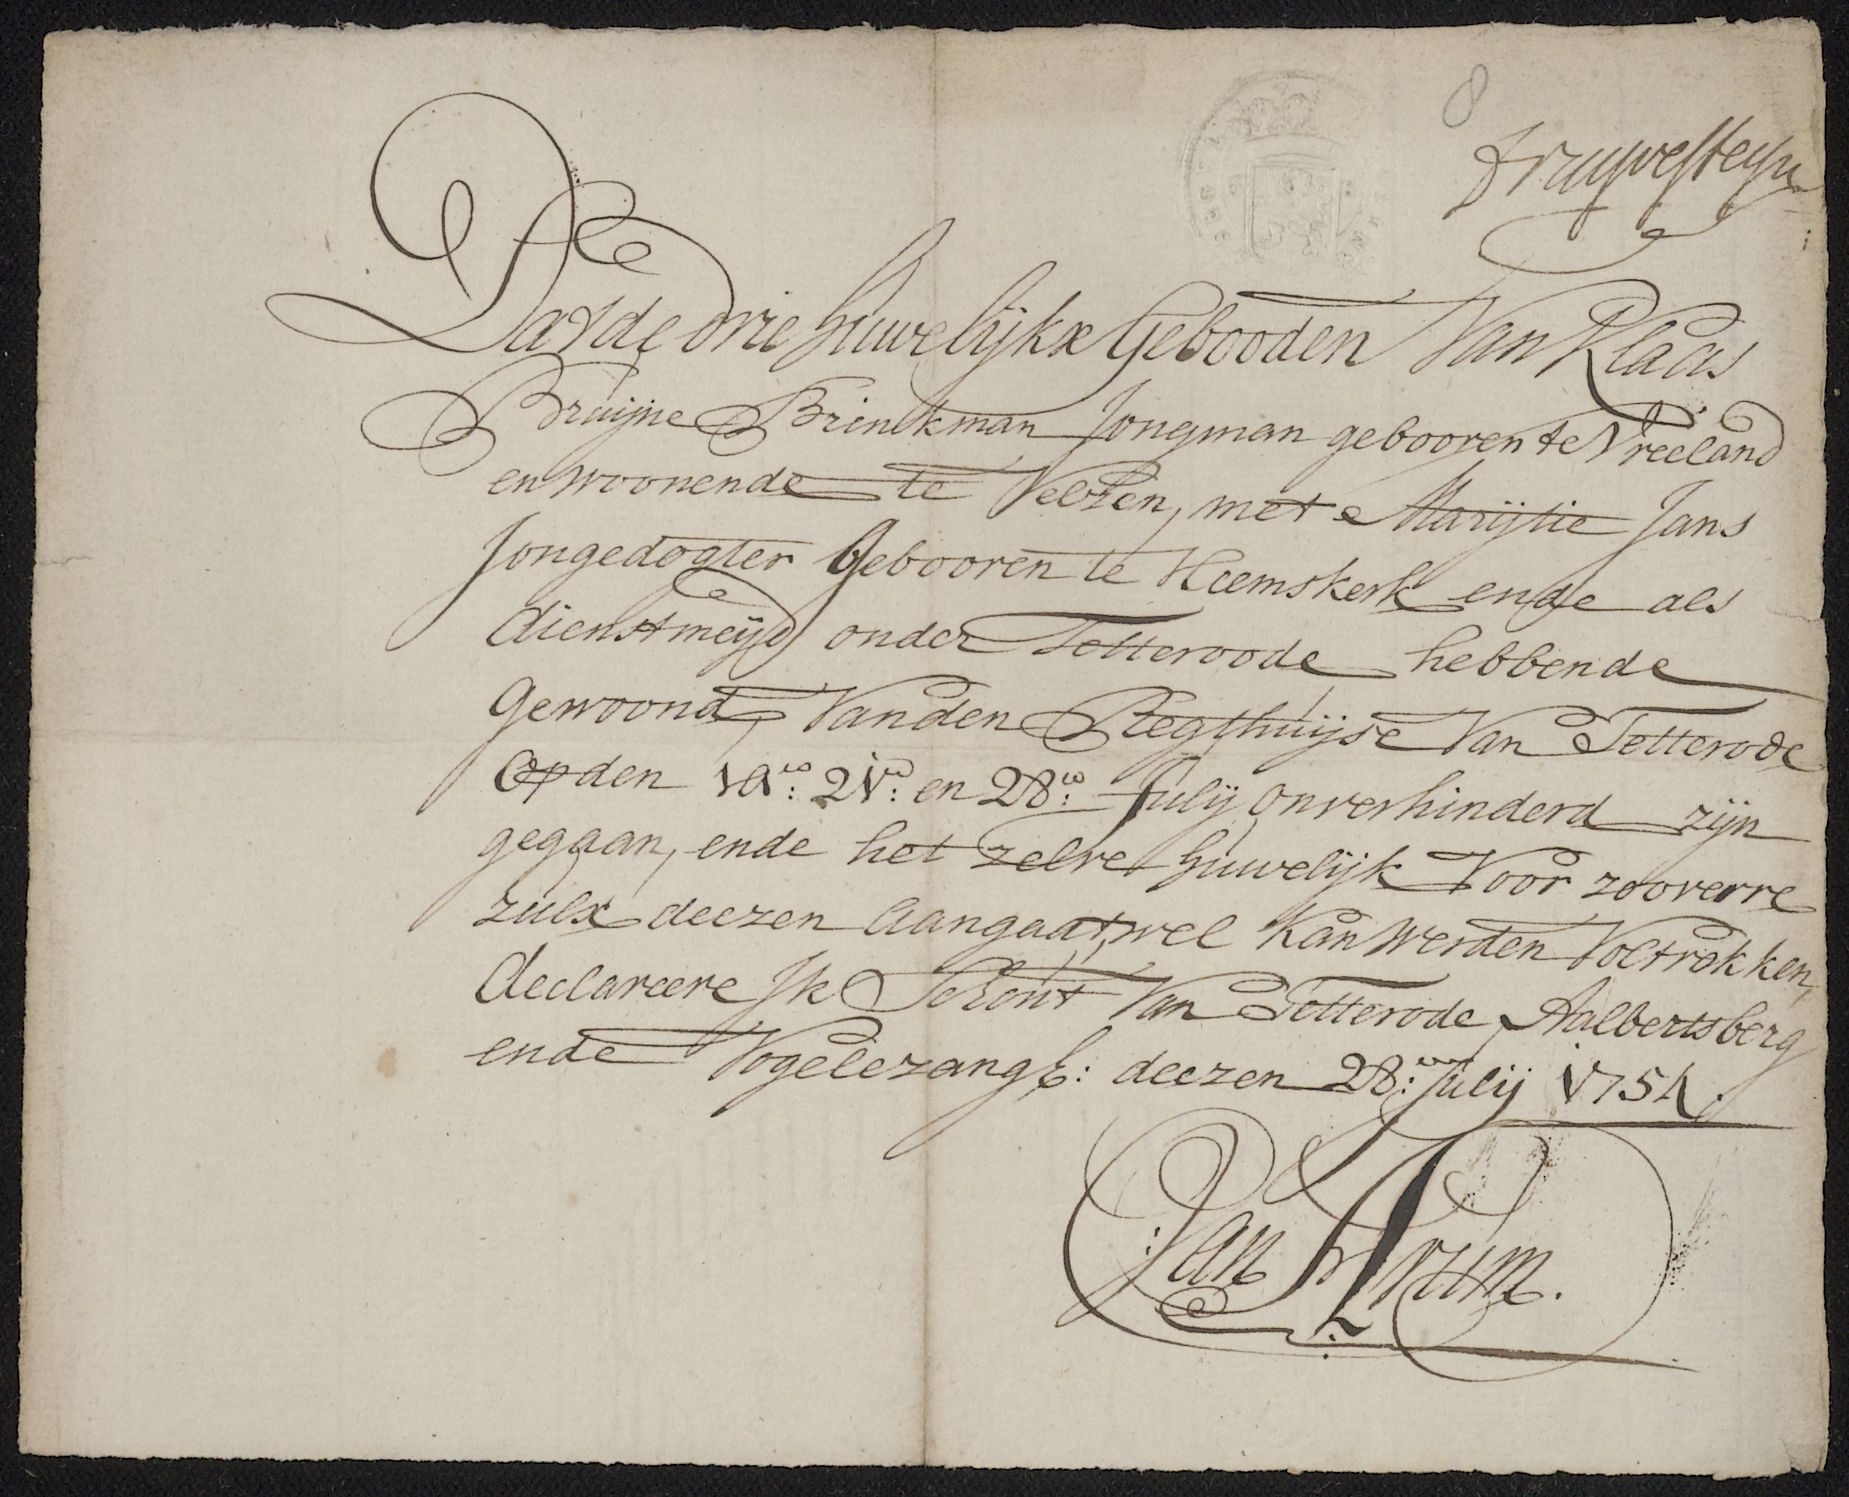 8
Dat de drie huwelijkx Gebooden Van Klaas
Bruijne Brinckman Jongman gebooren te Vreeland
en woonende te Velzen, met Marijtie Jans
Jongedogter Gebooren te Heemskerk ende als
dienstmeijd onder Tetteroode hebbende
Gewoond, Van den Regthuijse Van Tetterode
Op den 21en: en 28en: Julij onverhinderd zijn
gegaan, ende het zelve huwelijk Voor zooverre
zulx deezen Aangaat, wel Kan Werden Voltrokken,
declareere Ik Schout Van Tetterode, Aalbertsberg
ende Vogelezang &: deezen 28en: Julij 1754.
Jan